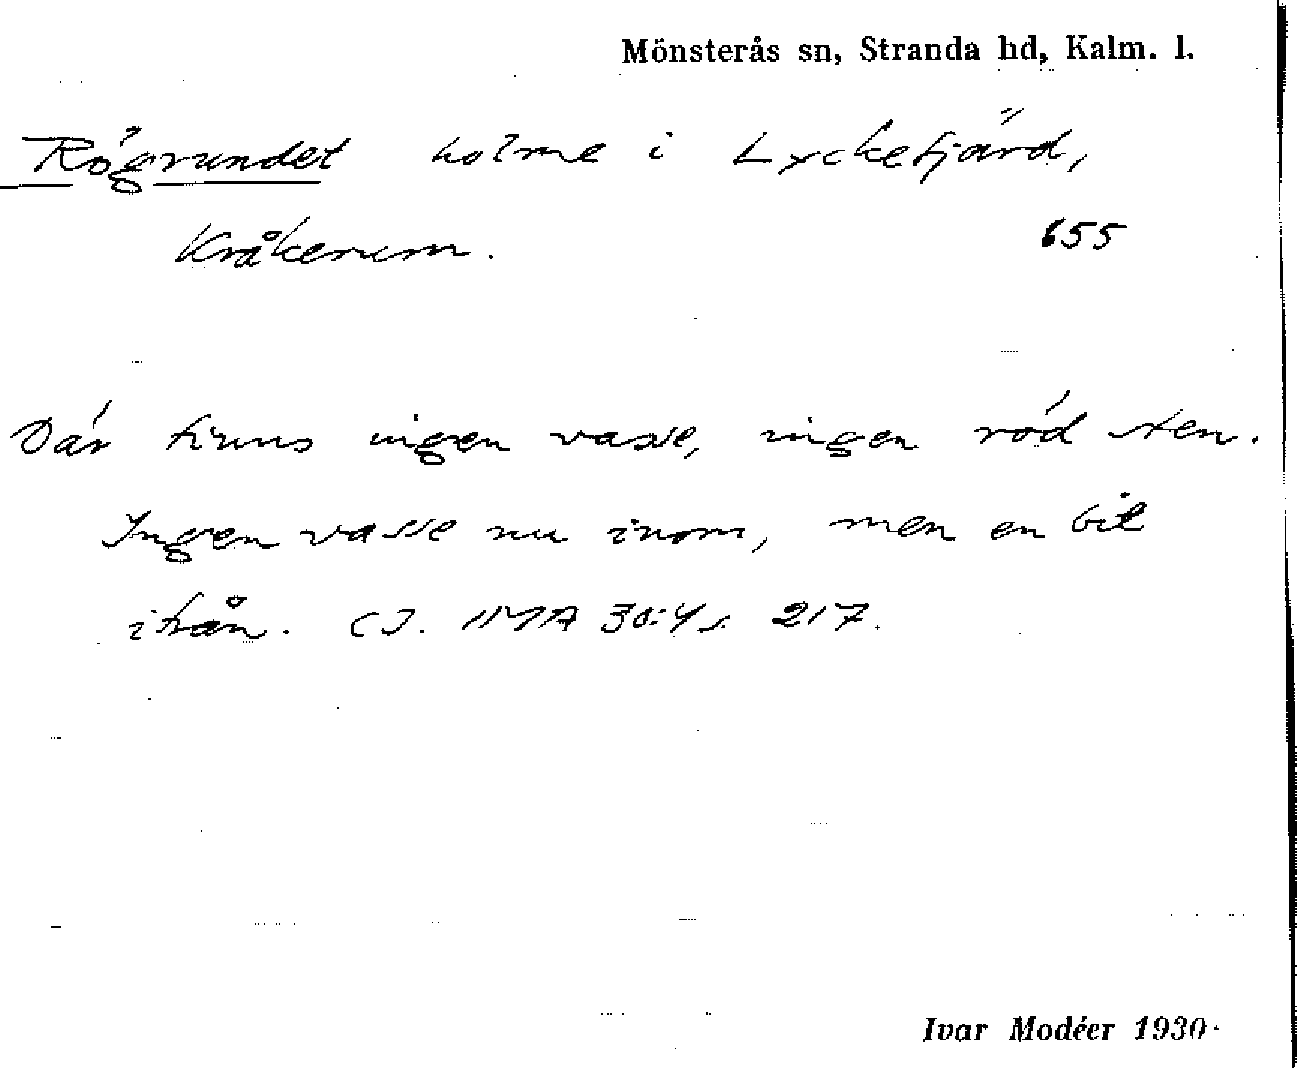 Mönsterås sn, Stranda hd, Kalm. l.
Rögrundet holme i Lyckefjärd,
Kråkerum. 655
Där finns ingen vasse, ingen röd sten.
Ingen vasse nu inom, men en bit
ifrån. CJ. IMA 30:4 s. 217.
Ivar Modéer 1930.